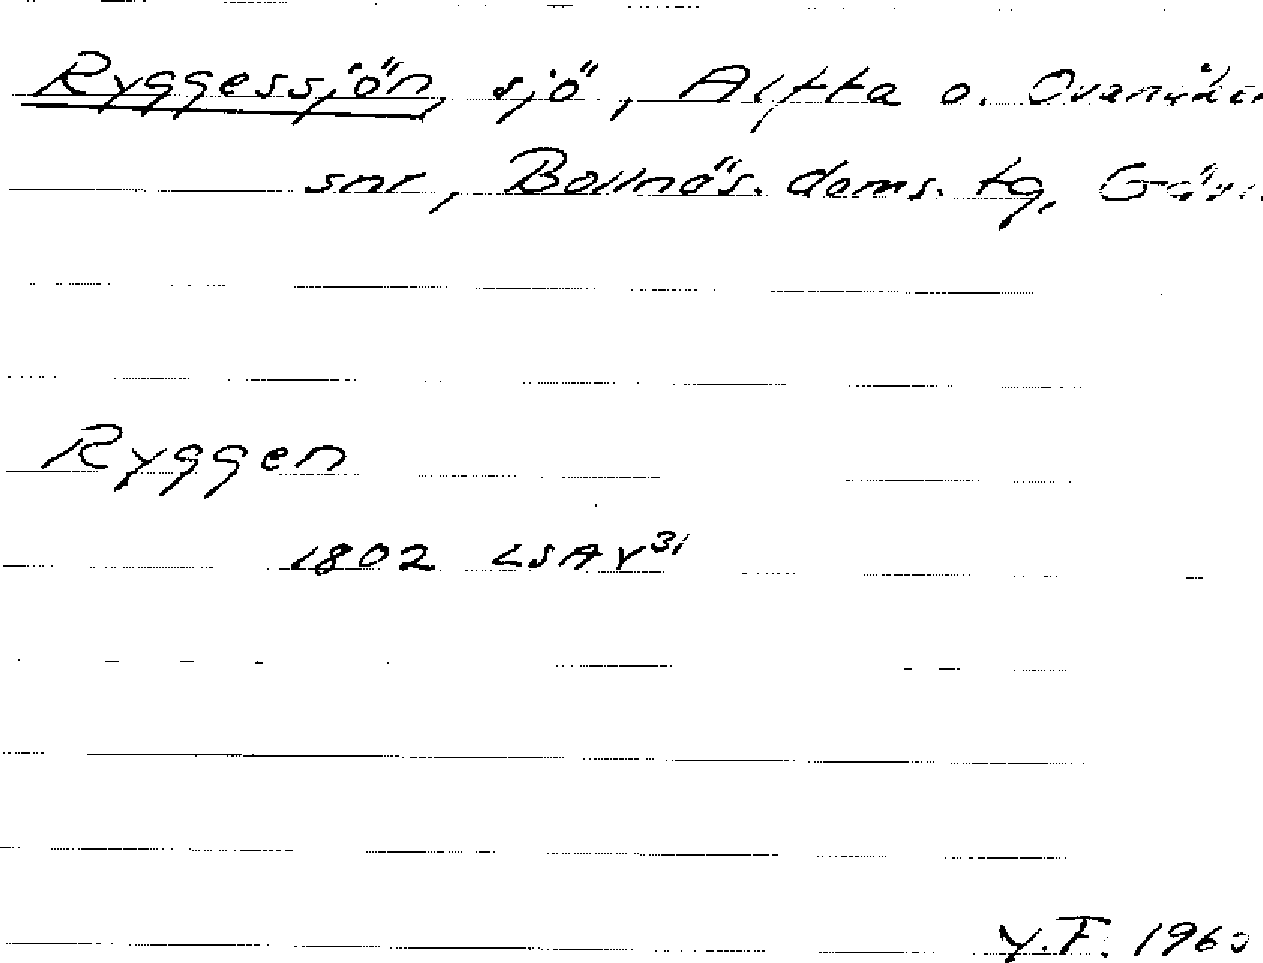 Ryggessjön, sjö, Alfta o. Ovanåker
snr, Bollnäs. doms. tg, Gävl.
Ryggen
1802 LSA Y31
Y.F. 1960